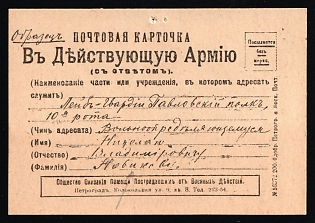 Образецъ
ПОЧТОВАЯ КАРТОЧКА
Въ Дѣйствующую Армію
(СЪ ОТВѢТОМЪ).
Посылается безъ марки.
(Наименованіе части или учрежденія, въ которомъ адресатъ
служитъ) Лейбъ-Гвардіи Павловскій полкъ,
10ая рота
(Чинъ адресата) Вольноопредѣляющемуся
(Имя) Николаю
(Отчество) Владиміровичу
(Фамилія)
Общество Оказанія Помощи Пострадавшимъ отъ Военныхъ Дѣйствій.
Петроградъ,